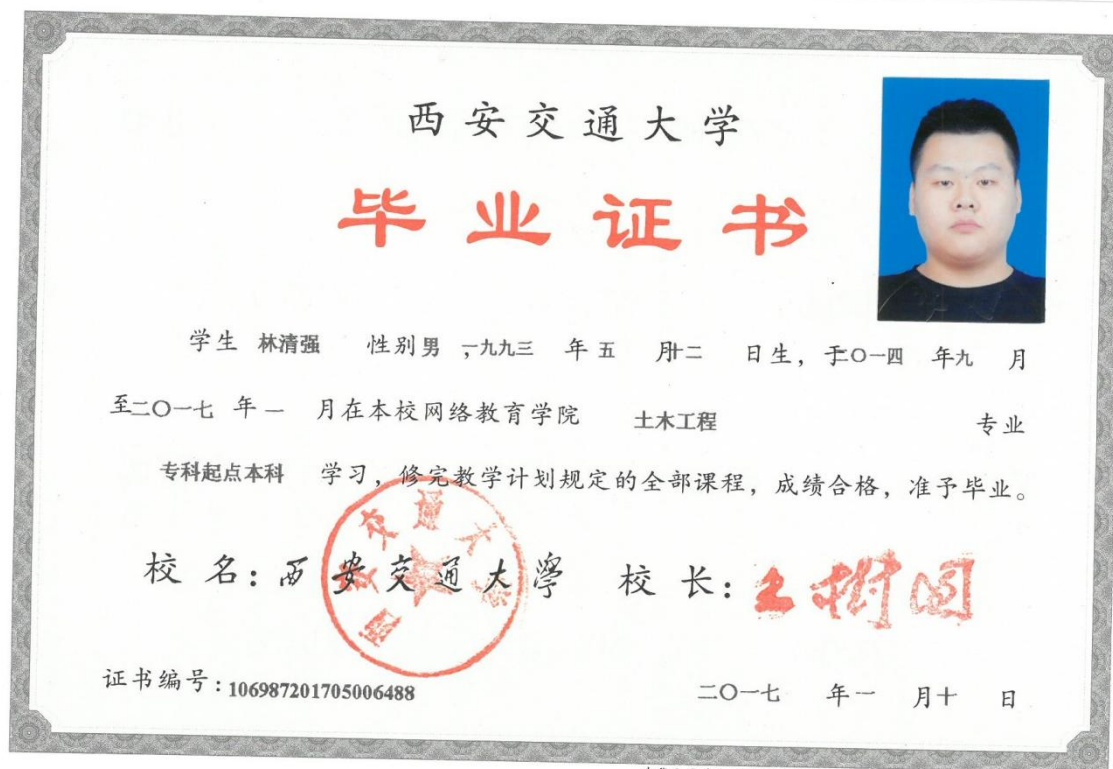 西安交通大学
毕业证书
学生 林清强 性别男,一九九三 年五 月十二 日生,于二〇一四 年九 月
至二〇一七 年一 月在本校网络教育学院 土木工程 专业
专科起点本科 学习,修完教学计划规定的全部课程,成绩合格,准予毕业。
校名:西安交通大學 校长:王树国
西安交通大学
证书编号:106987201705006488
二〇一七 年一 月十 日